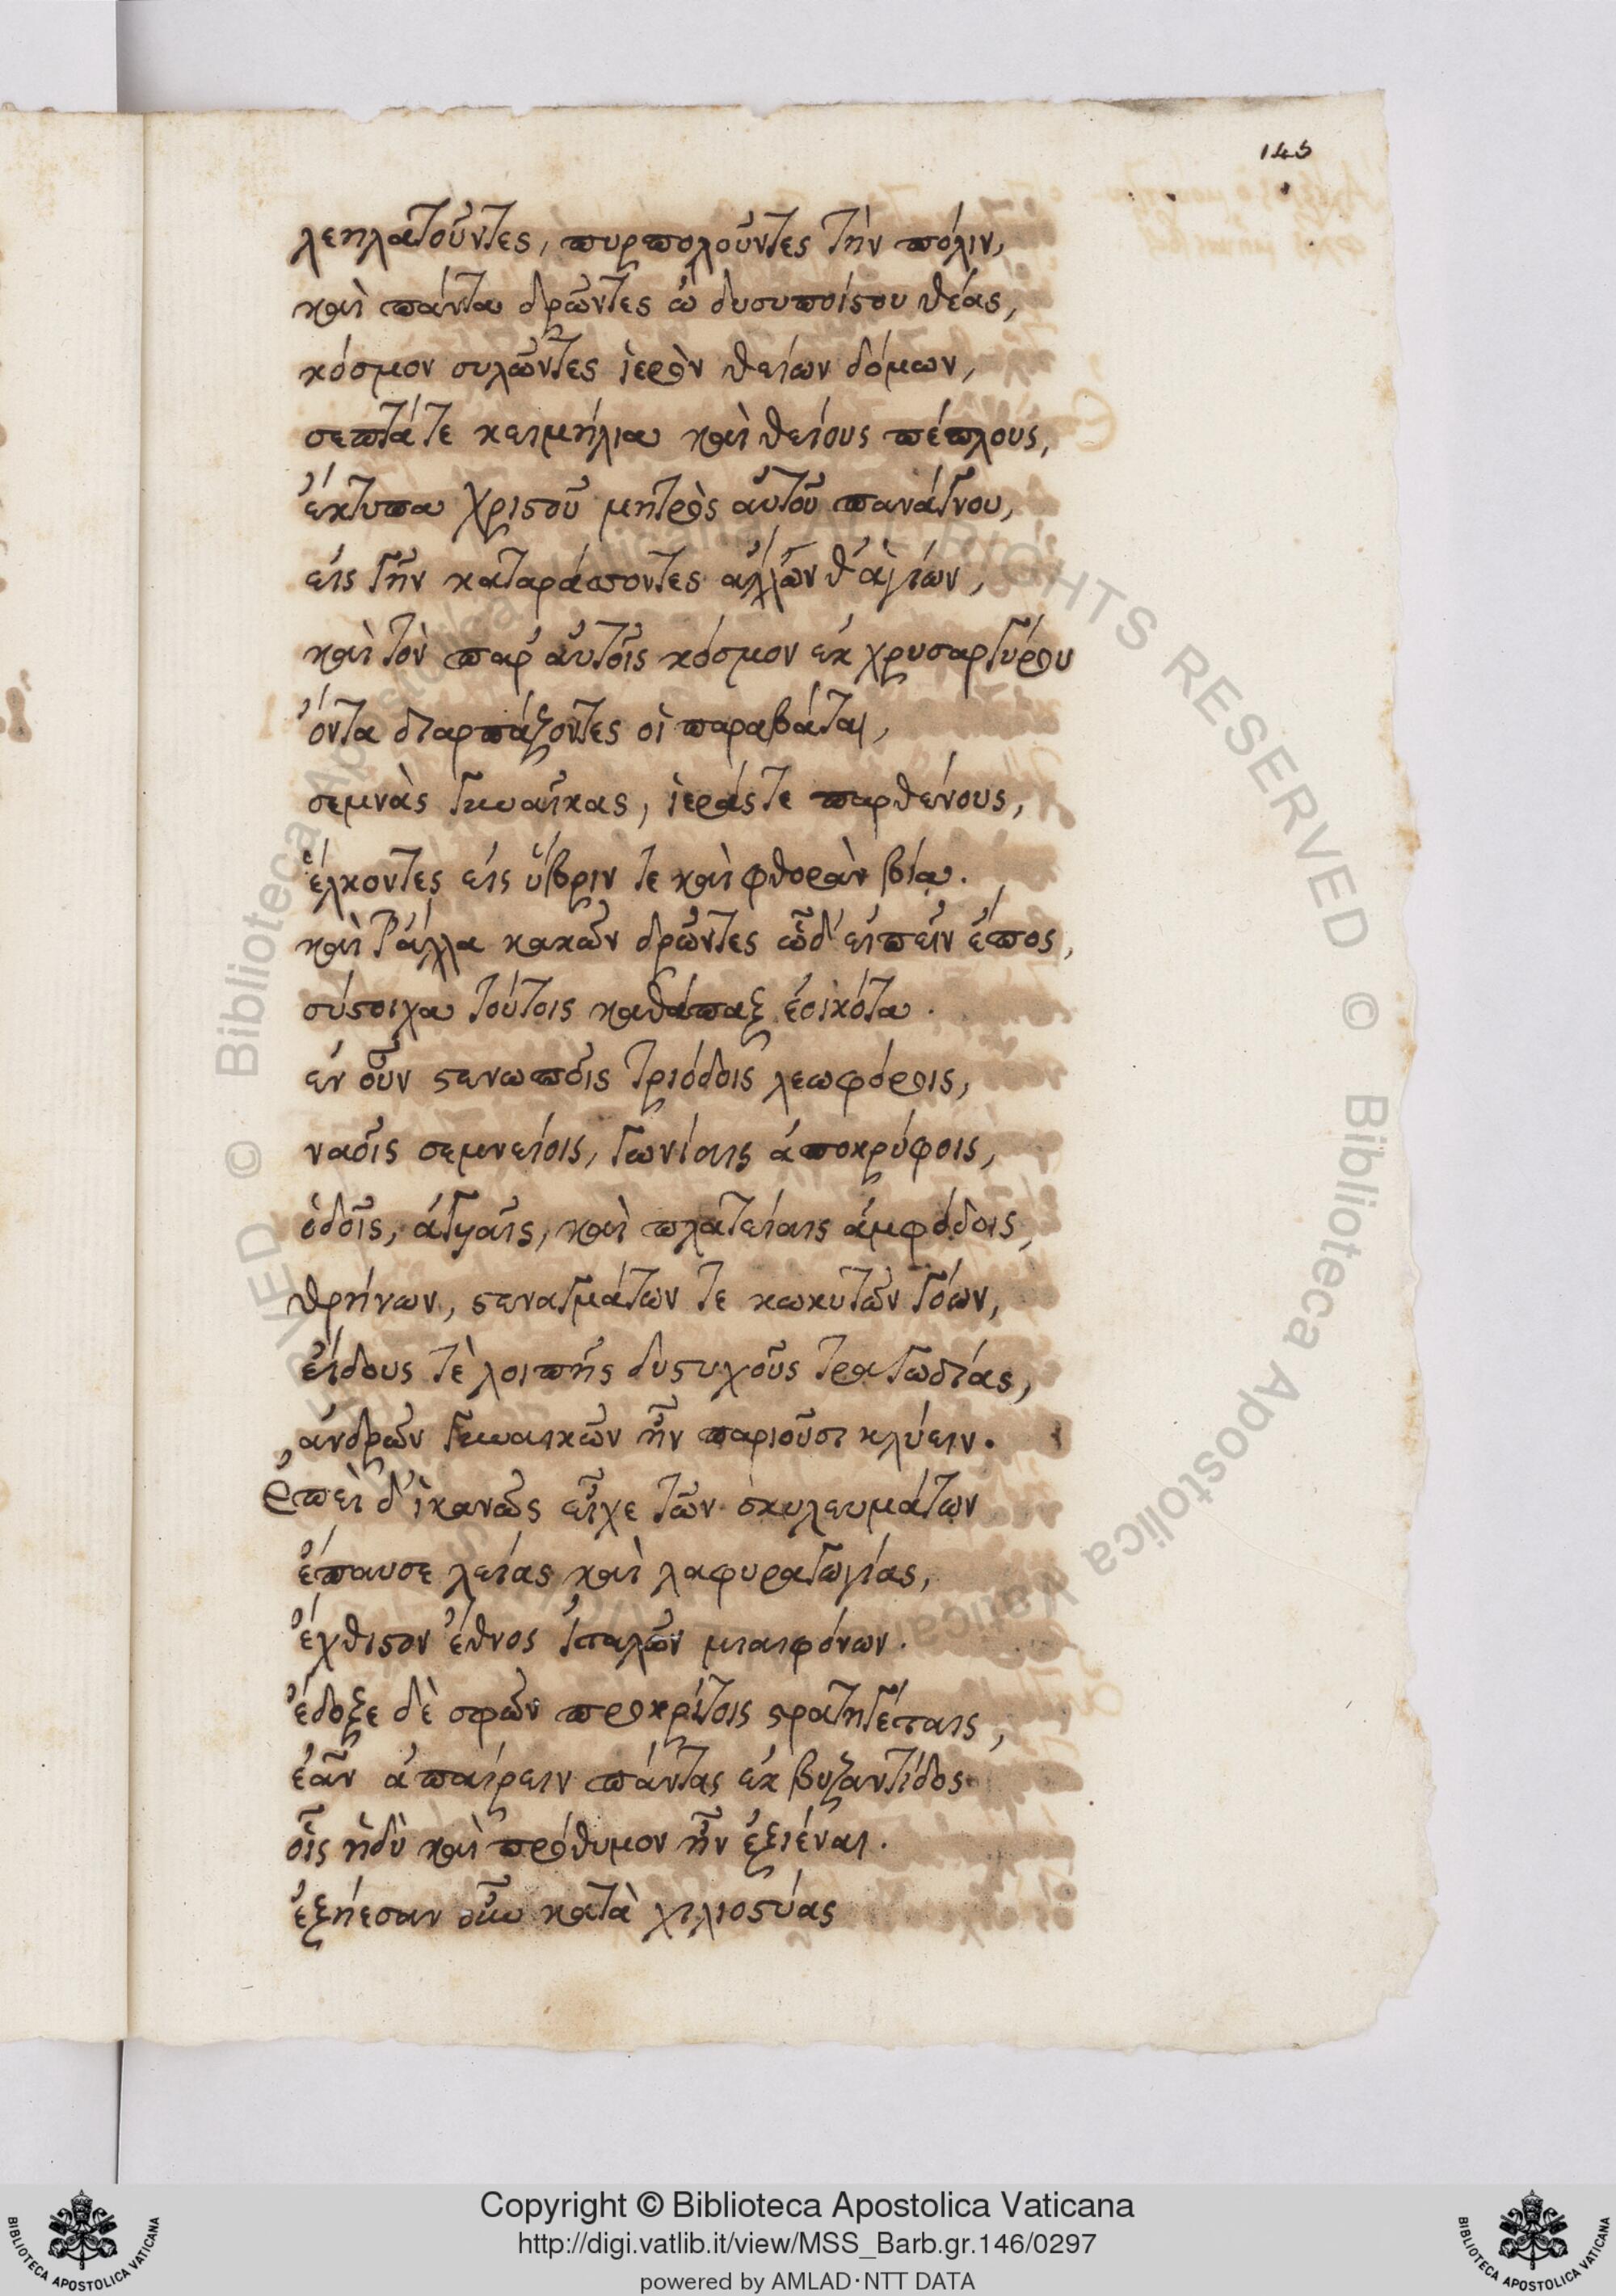 145
λεηλατοῦντες, πυρπολοῦντες τὴν πόλιν,
καὶ πάντα δρῶντες ὦ δυσυποίστου θέας,
κόσμον συλῶντες ἱερὸν θείων δόμων,
σεπτά τε κειμήλια καὶ θείους πέπλους,
ἔκτυπα χριστοῦ μητρὸς αὐτοῦ πανάγνου,
εἰς γῆν καταράσσοντες ἄλλων θ' ἁγίων,
καὶ τὸν παρ' αὐτοῖς κόσμον ἐκ χρυσαργύρου
ὄντα διαρπάζοντες οἱ παραβάται,
σεμνὰς γυναῖκας, ἱεράς τε παρθένους,
ἕλκοντες εἰς ὕβριν τε καὶ φθορὰν βίᾳ.
καὶ τἄλλα κακῶν δρῶντες ὧδ' εἰπεῖν ἔπος,
σύστοιχα τούτοις καθάπαξ ἐοικότα.
ἐν οὖν στενωποῖς τριόδοις λεωφόροις,
ναοῖς σεμνείοις, γωνίαις ἀποκρύφοις,
ὁδοῖς, ἀγυαῖς, καὶ πλατείαις ἀμφόδοις,
θρήνων, στεναγμάτων τε κωκυτῶν γόων,
εἴδους τὲ λοιπῆς δυστυχοῦς τραγωδίας,
ἀνδρῶν γυναικῶν ἦν παριοῦσι κλύειν.
ἐπεὶ δ' ἱκανῶς εἶχε τῶν σκυλευμάτων
ἔπαυσε λείας καὶ λαφυραγωγίας,
ἔχθιστον ἔθνος ἰταλῶν μιαιφόνων.
ἔδοξε δὲ σφῶν προκρίτοις στρατηγέταις,
ἐᾶν ἀπαίρειν πάντας ἐκ βυζαντίδος
οἷς ἡδὺ καὶ πρόθυμον ἦν ἐξιέναι.
ἐξήεσαν οὖν κατὰ χιλιοστύας
Copyright © Biblioteca Apostolica Vaticana
http://digi.vatlib.it/view/MSS_Barb.gr.146/0297
powered by AMLAD·NTT DATA